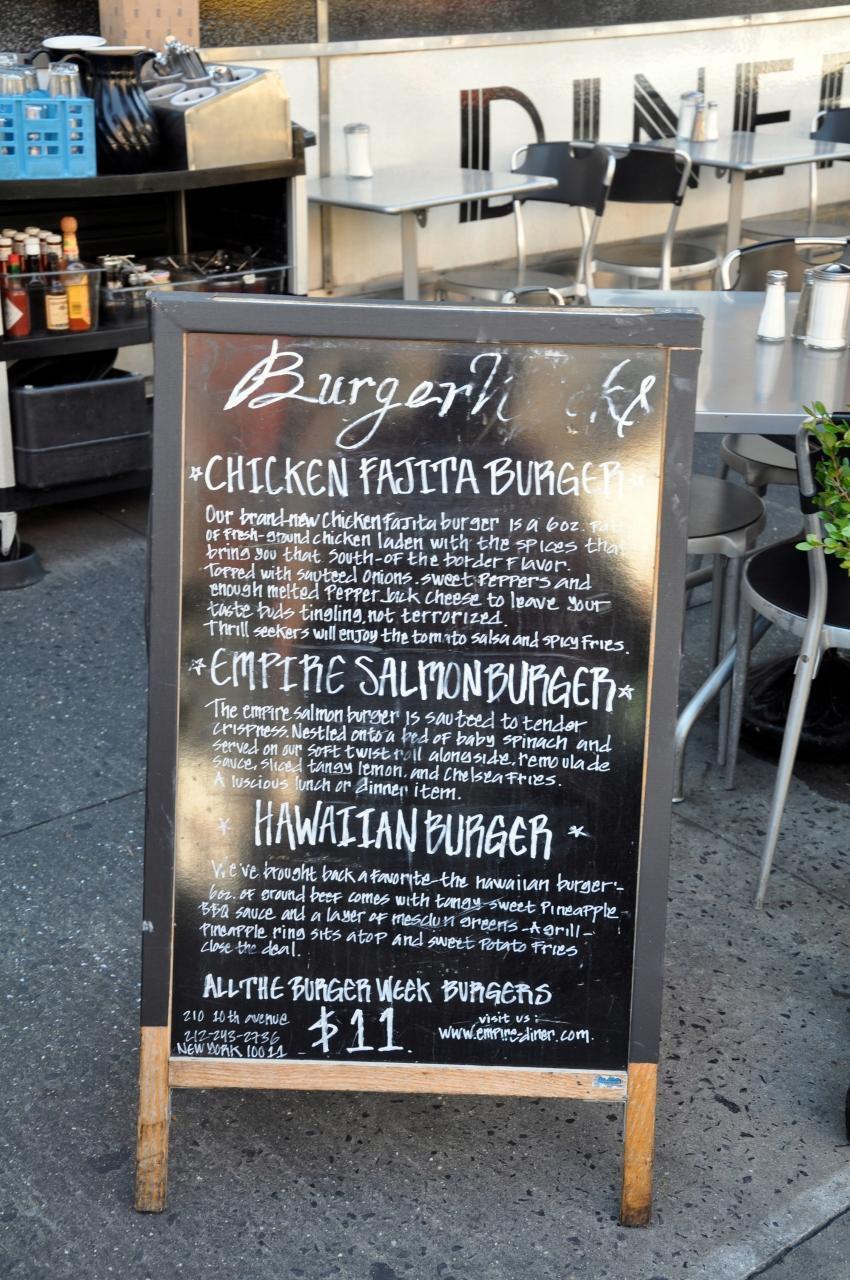 DINER
Burger
*CHICKEN FAJITA BURGER*
Our brand-new Chicken Fajita burger is a 6oz. Patty
of Fresh-ground chicken laden with the spices that
bring you that South-of the border Flavor.
Topped with sauteed onions. sweet Peppers and
enough melted Pepper Jack Cheese to leave your
taste buds tingling, not terrorized.
Thrill seekers will enjoy the tomato salsa and spicy Fries.
*EMPIRE SALMON BURGER*
The empire salmon burger is sauteed to tender
crispness. Nestled onto a bed of baby spinach and
served on our soft twist roll alongside, remoulade
sauce, sliced tangy lemon, and Chelsea Fries.
A luscious lunch or dinner item.
* HAWAIIAN BURGER *
We've brought back a Favorite-the hawaiian burger-
6oz. of ground beef comes with tangy-sweet Pineapple
BBQ sauce and a layer of mesclun greens-A grill-
Pineapple ring sits atop and sweet Potato Fries
close the deal.
ALL THE BURGER WEEK BURGERS
210 10th avenue
212-243-2736
NEW YORK 10011
$11.
visit us:
www.empire-diner.com.